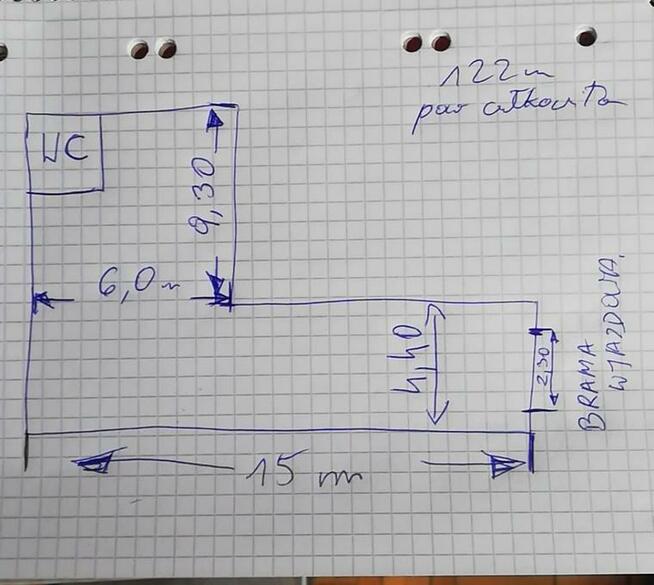 122m
pow całkowita
WC
9,30
6,0m
4,40
2,30
BRAMA
WJAZDOWA.
15 m